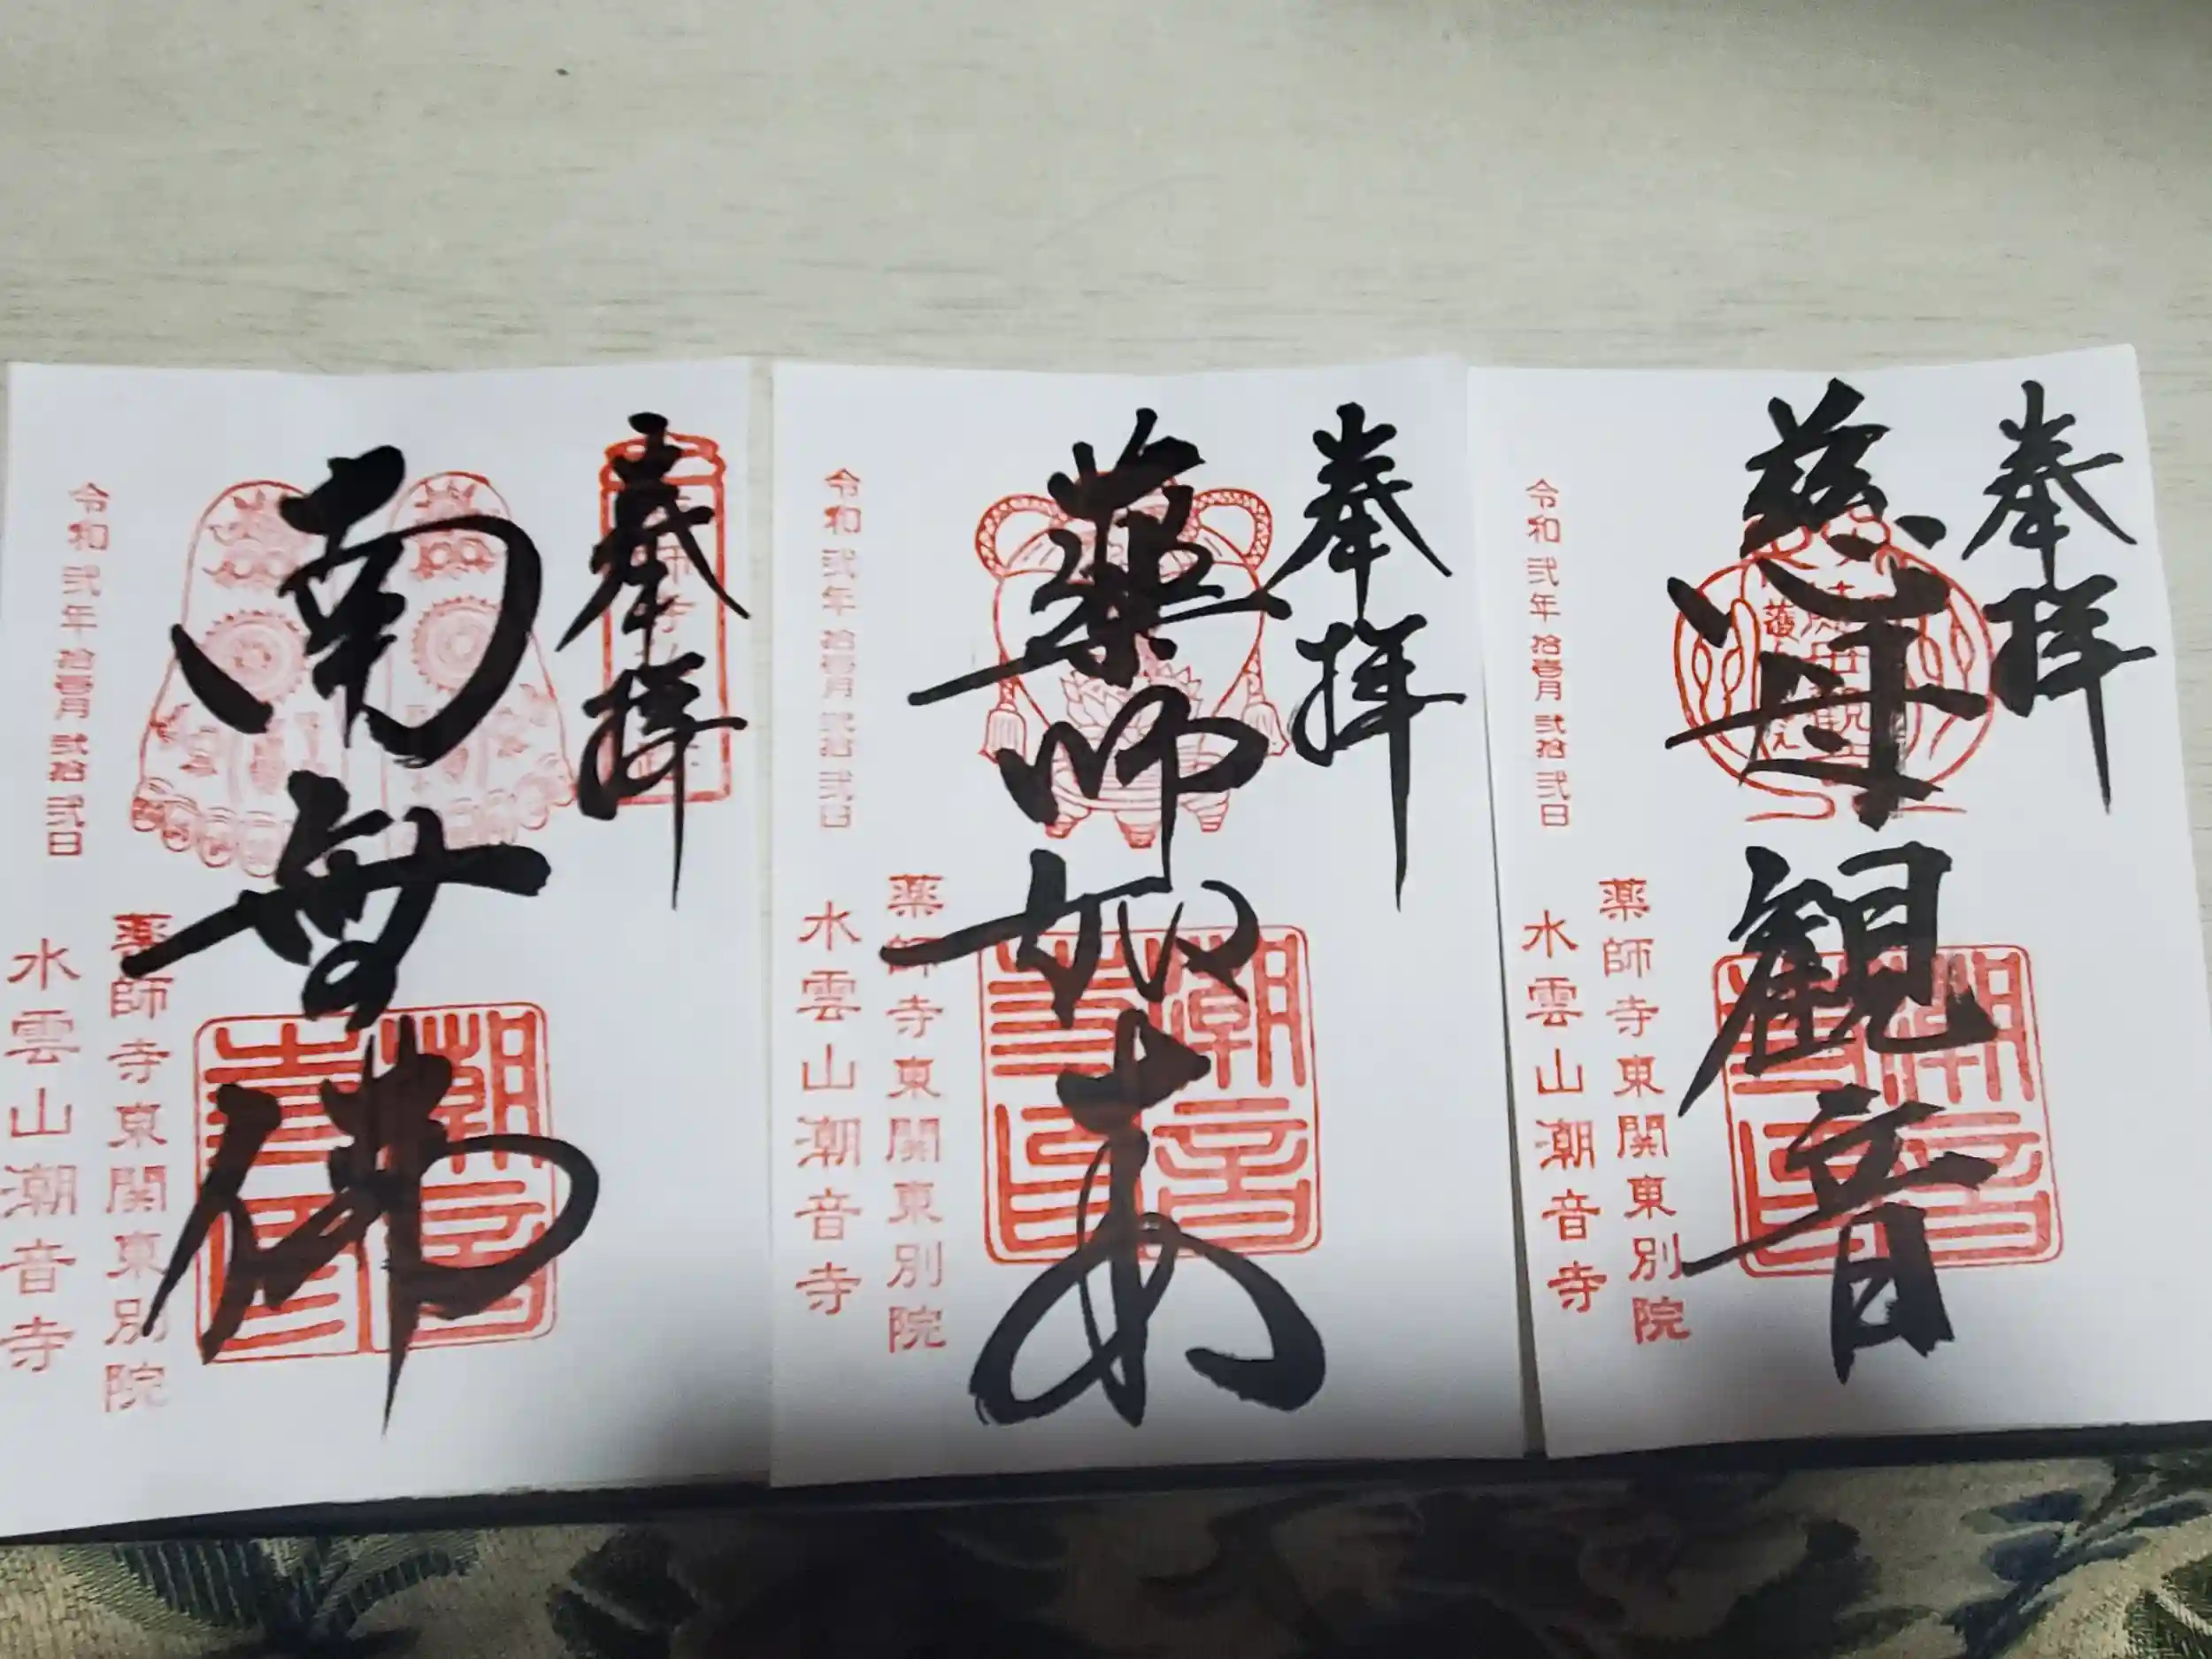 奉拝
慈母観音
令和弐年拾壹月弐拾弐日
薬師寺東関東別院
水雲山潮音寺
奉拝
薬師如来
令和弐年拾壹月弐拾弐日
薬師寺東関東別院
水雲山潮音寺
奉拝
南無佛
令和弐年拾壹月弐拾弐日
薬師寺東関東別院
水雲山潮音寺